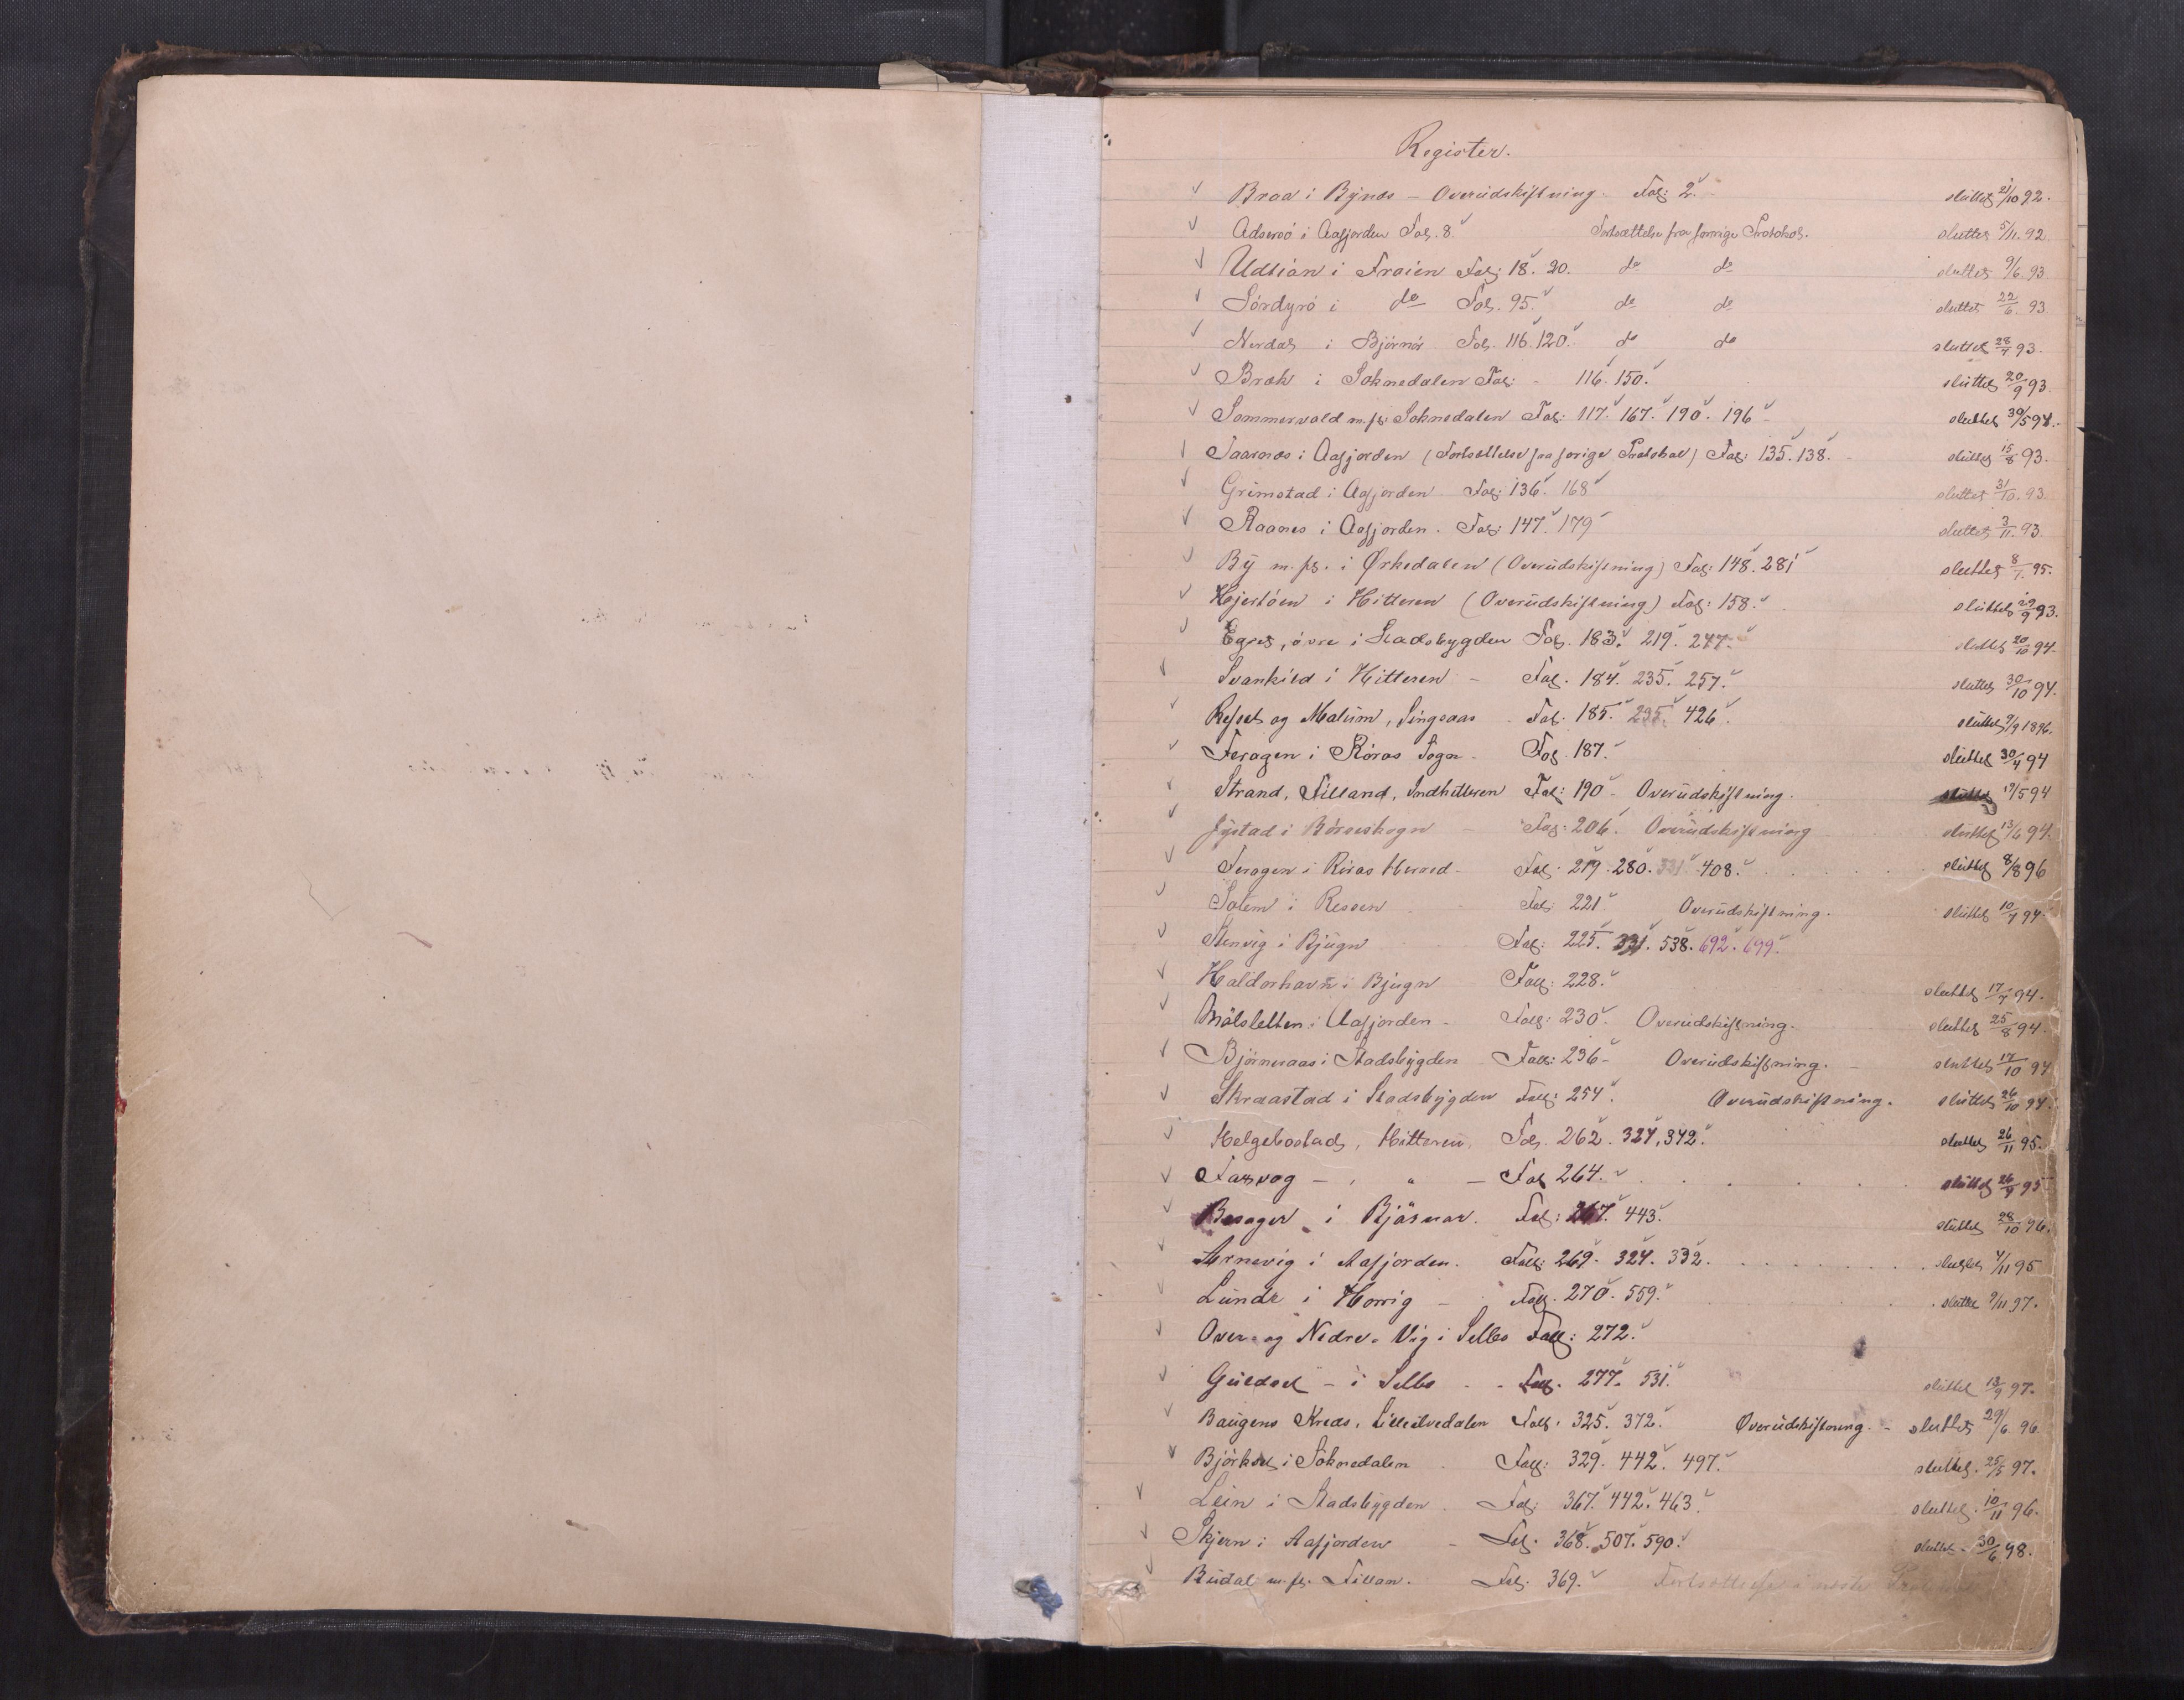 Register.
Braa i Bynes - Overudskiftning. Fol: 2. sluttet 21/10 92.
Adserø i Aafjorden Fol. 8 Fortsættelse fra forrige Protokol. sluttet 5/11. 92
Udsian i Frøien Fol: 18. 20. do do sluttet 9/6. 93
Sørdyrø i do Fol. 95. do do sluttet 22/6. 93
Nordal i Bjørnør Fol. 116. 120. do do sluttet 28/7 93.
Bræk i Soknedalen Fol: - 116. 150. sluttet 20/9 93.
Sommervold m. fl. Soknedalen Fol: 117. 167. 190. 196 - sluttet 30/5 94.
Taarnes i Aafjorden (Fortsættelse fra forige Protokol) Fol: 135. 138. sluttet 15/8 93.
Grimstad i Aafjorden. Fol: 136. 168 sluttet 31/10. 93.
Raanes i Aafjorden. Fol: 147. 179 sluttet 3/11. 93
By m. fl. i Ørkedalen (Overudskiftning) Fol: 148. 281 sluttet 8/7. 95.
Hjertøen i Hitteren (Overudskiftning) Fol: 158. sluttet 29/9 93.
øvre i Stadsbygden Fol. 183. 219. 247. sluttet 20/10 94.
Svankild i Hitteren - Fol. 184. 235. 257. sluttet 30/10 94.
og Malum, Singsaas Fol. 185. 235. 426. sluttet 9/9 1896.
Feragen i Røros Sogn - Fol. 187. sluttet 30/4 94
Strand, Filland, Indhitteren Fol: 190 - Overudskiftning. sluttet 19/5 94
Jystad i Børseskogn - Fol: 206. Overudskiftning sluttet 13/6 94.
Feragen i Røros Herred - Fol: 219. 280. 331. 408. sluttet 8/8 96
Solem i Rissen Fol: 221 Overudskiftning. sluttet 10/7 94.
Stenvig i Bjugn Fol: 225. 331. 538. 692. 699.
Haldorhavn i Bjugn Foll: 228. sluttet 17/7 94.
Maalsletten i Aafjorden - Foll: 230. Overudskiftning. sluttet 25/8 94.
Bjørneraas i Stadsbygden Foll: 236 - Overudskiftning. - sluttet 17/10 94
Skraastad i Stadsbygden Foll: 254. Overudskiftning. sluttet 26/10 94.
Helgebostad, Hitteren, Fol. 262. 324, 342. sluttet 26/11 95.
- , " - Fol 264. sluttet 26/9 95
Besager i Bjørnør. Fol: 267. 443. sluttet 28/10 96.
Arnevig i Aafjorden. Foll: 269. 324. 332. sluttet 4/11 95
Lunde i Horrig - Foll. 270. 559. sluttet 9/11 97.
Over- og Nedre- Vig i Selbo Foll: 272.
Guldset - i Selbo - Foll. 277. 531. sluttet 13/9 97.
Baugens Kreds, Lilleelvedalen Foll. 325. 372. Overudskiftning. - sluttet 29/6 96.
Bjørkset i Soknedalen Foll: 329. 442. 497. sluttet. 25/5 97.
Lein i Stadsbygden. Fol: 367. 442. 463. sluttet. 10/11 96.
Skjern i Aafjorden - Fol. 368. 507. 590. sluttet - 30/6 98.
Budal m. fl. Fillan. Fol. 369. Fortsættelse i næste Prot